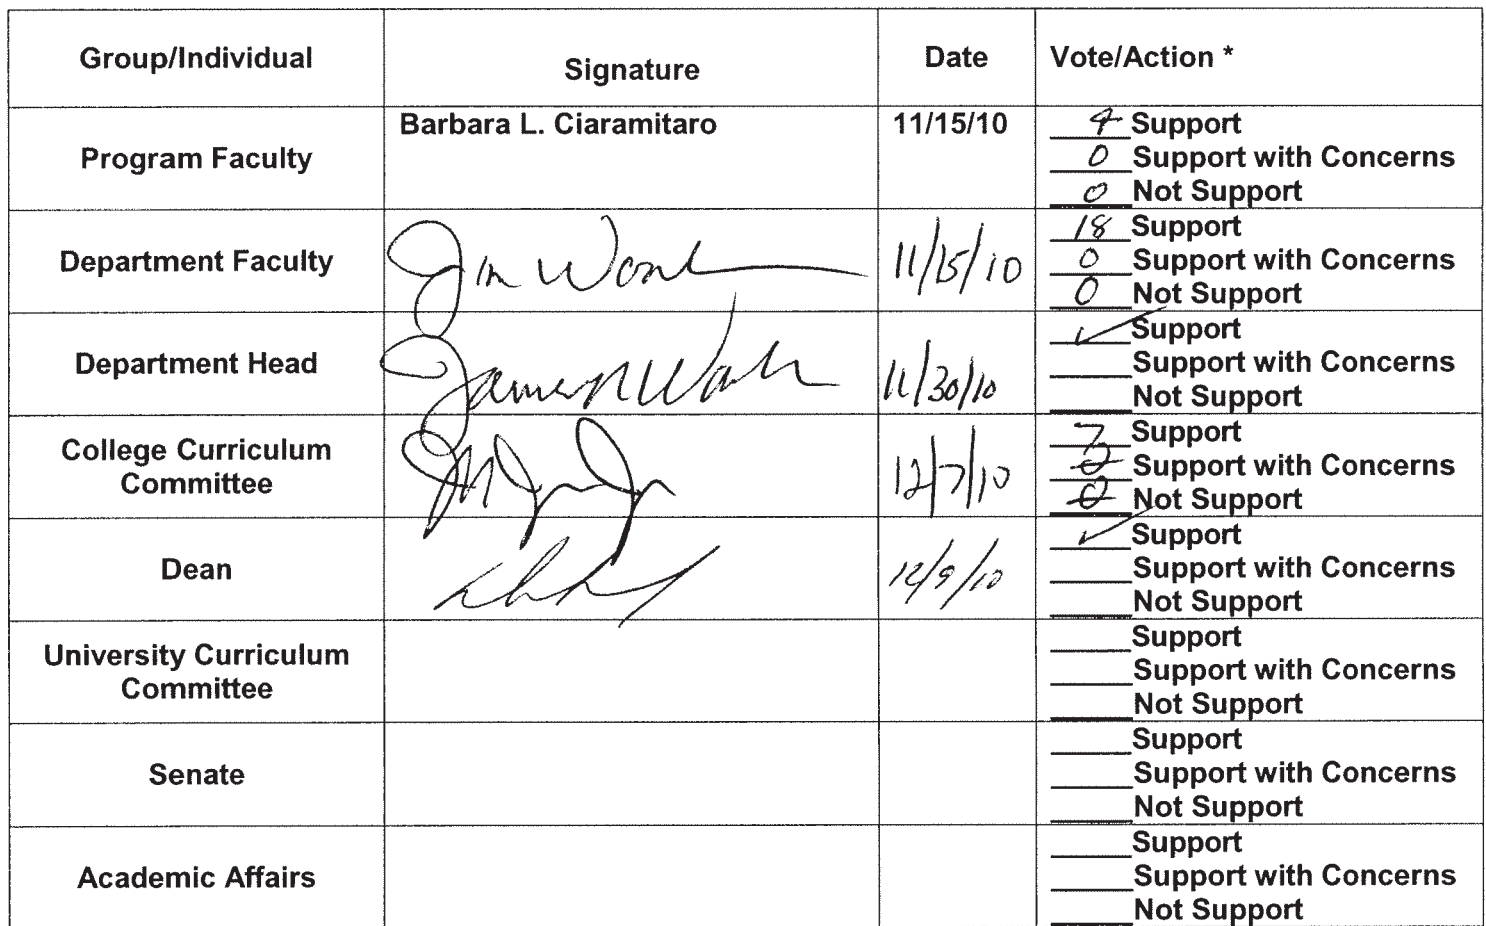 Group/Individual Signature Date Vote/Action *
Program Faculty Barbara L. Ciaramitaro 11/15/10
4 Support
0 Support with Concerns
0 Not Support
Department Faculty Jim 11/15/10
18 Support
0 Support with Concerns
0 Not Support
Department Head James 11/30/10
✓ Support
Support with Concerns
Not Support
College Curriculum
Committee
12/7/10
7 Support
0 Support with Concerns
0 Not Support
Dean 12/9/10
✓ Support
Support with Concerns
Not Support
University Curriculum
Committee
Support
Support with Concerns
Not Support
Senate
Support
Support with Concerns
Not Support
Academic Affairs
Support
Support with Concerns
Not Support